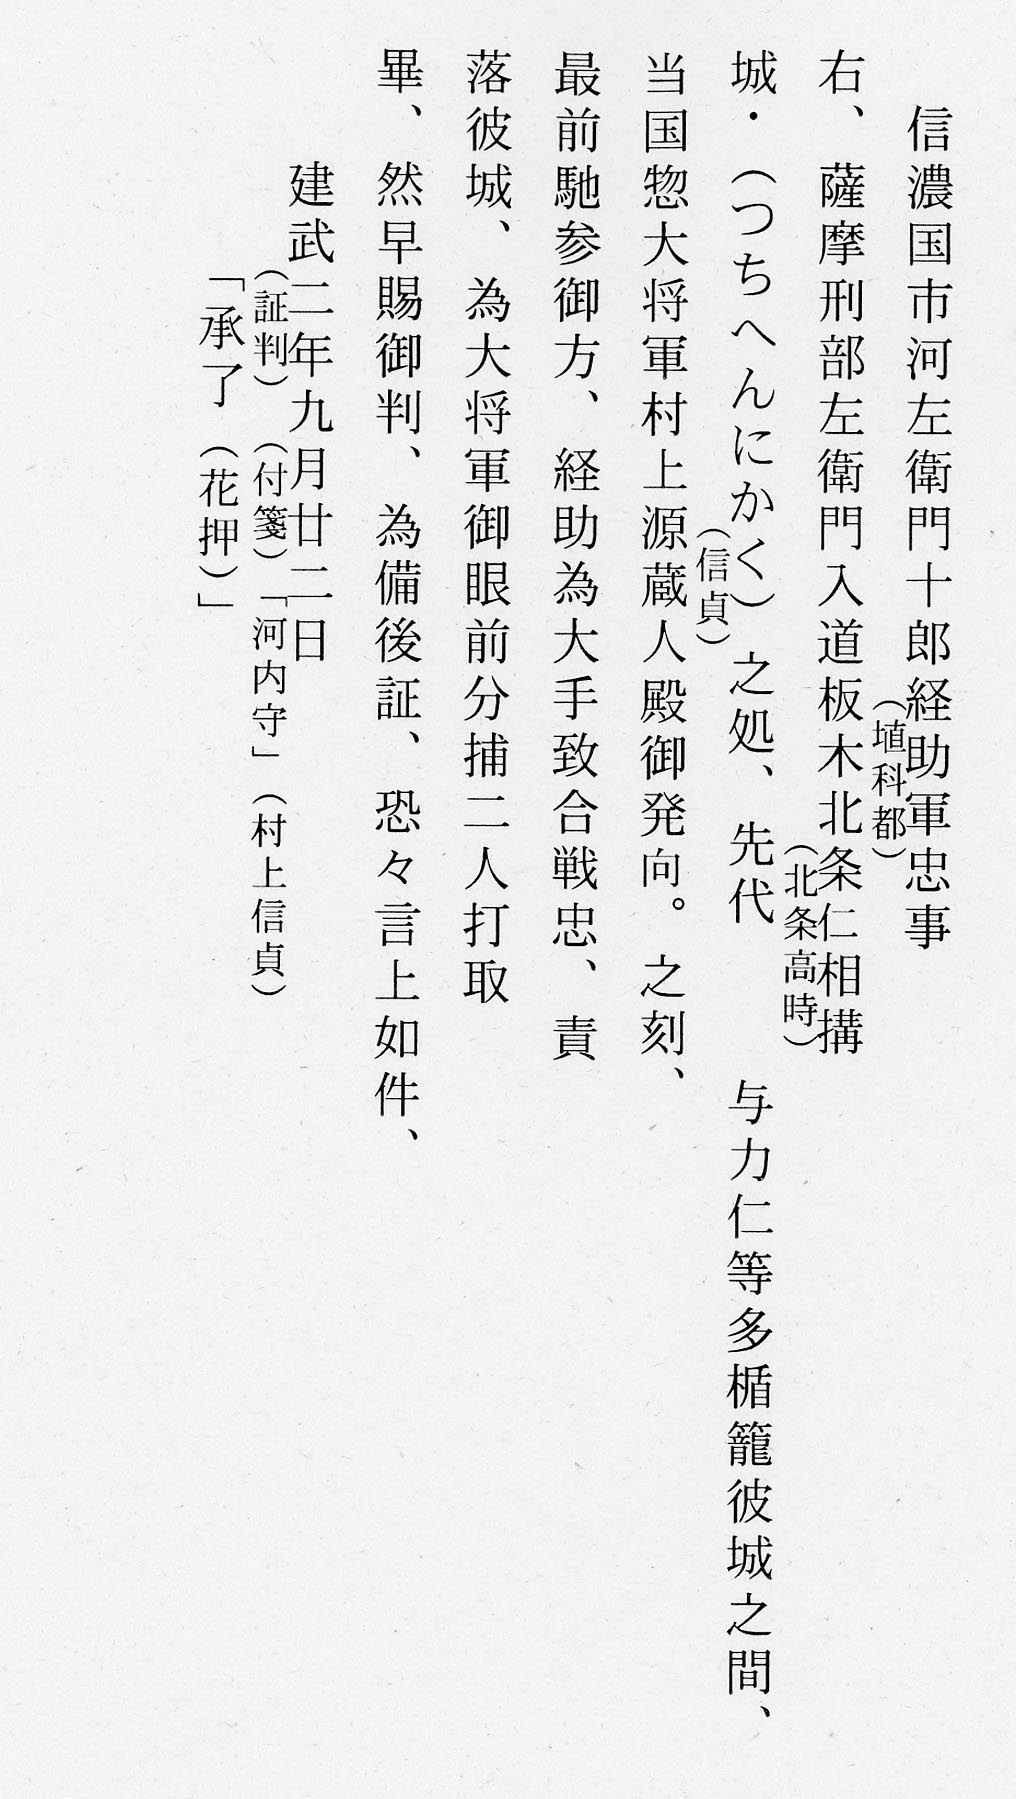 信濃国市河左衛門十郎経助軍忠事
(埴科都)
右、薩摩刑部左衛門入道板木北条仁相搆
(北条高時)
城・(つちへんにかく)之処、先代 与力仁等多楯籠彼城之間、
(信貞)
当国惣大将軍村上源蔵人殿御発向。之刻、
最前馳参御方、経助為大手致合戦忠、責
落彼城、為大将軍御眼前分捕二人打取
畢、然早賜御判、為備後証、恐々言上如件、
建武二年九月廿二日
(証判)(付箋)「河内守」(村上信貞)
「承了(花押)」